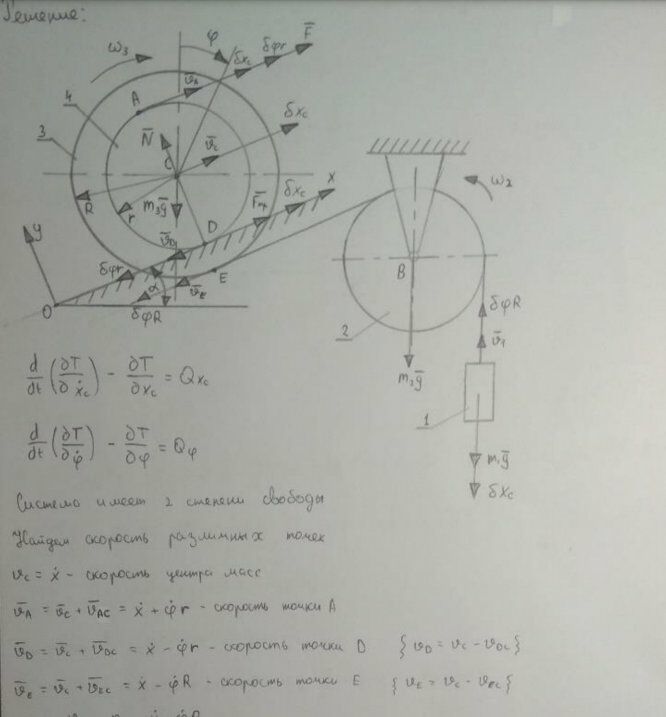 Решение:
ω₃
φ
δx_c
δφr
F̄
4
A
v̄_A
3
N̄
C
v̄_c
δx_c
R
r
m₃ḡ
D
F̄тр
δx_c
x
y
v̄_D
δφr
α
v̄_E
E
O
δφR
ω₂
B
2
m₂ḡ
δφR
v̄₁
1
m₁ḡ
δx_c
d/dt (∂T/∂ẋ_c) - ∂T/∂x_c = Q_xc
d/dt (∂T/∂φ̇) - ∂T/∂φ = Q_φ
Система имеет 2 степени свободы
Найдем скорость различных точек
v_c = ẋ - скорость центра масс
v̄_A = v̄_c + v̄_AC = ẋ + φ̇r - скорость точки A
v̄_D = v̄_c + v̄_DC = ẋ - φ̇r - скорость точки D { v_D = v_c - v_DC }
v̄_E = v̄_c + v̄_EC = ẋ - φ̇R - скорость точки E { v_E = v_c - v_EC }